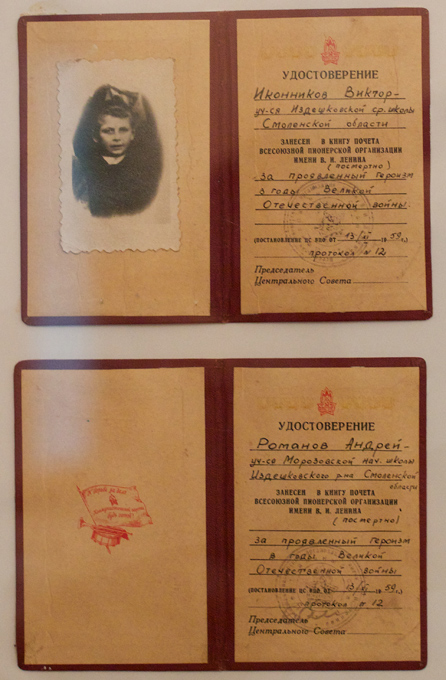 УДОСТОВЕРЕНИЕ
Иконников Виктор-
уч-ся Издешковской ср. школы
Смоленской области
ЗАНЕСЕН В КНИГУ ПОЧЕТА
ВСЕСОЮЗНОЙ ПИОНЕРСКОЙ ОРГАНИЗАЦИИ
ИМЕНИ В. И. ЛЕНИНА
(постертно)
за проявленный героизм
в годы Великой
Отечественной войны.
(ПОСТАНОВЛЕНИЕ ЦС ВПО ОТ 13/XI 1959г.)
протокол № 12
Председатель
Центрального Совета
УДОСТОВЕРЕНИЕ
Романов Андрей-
уч-ся Морозовской нач. школы
Издешковского р-на Смоленской
области
ЗАНЕСЕН В КНИГУ ПОЧЕТА
ВСЕСОЮЗНОЙ ПИОНЕРСКОЙ ОРГАНИЗАЦИИ
ИМЕНИ В. И. ЛЕНИНА
(постертно)
за проявленный героизм
в годы Великой
Отечественной войны
(ПОСТАНОВЛЕНИЕ ЦС ВПО ОТ 13/XI 1959г.)
протокол № 12
Председатель
Центрального Совета